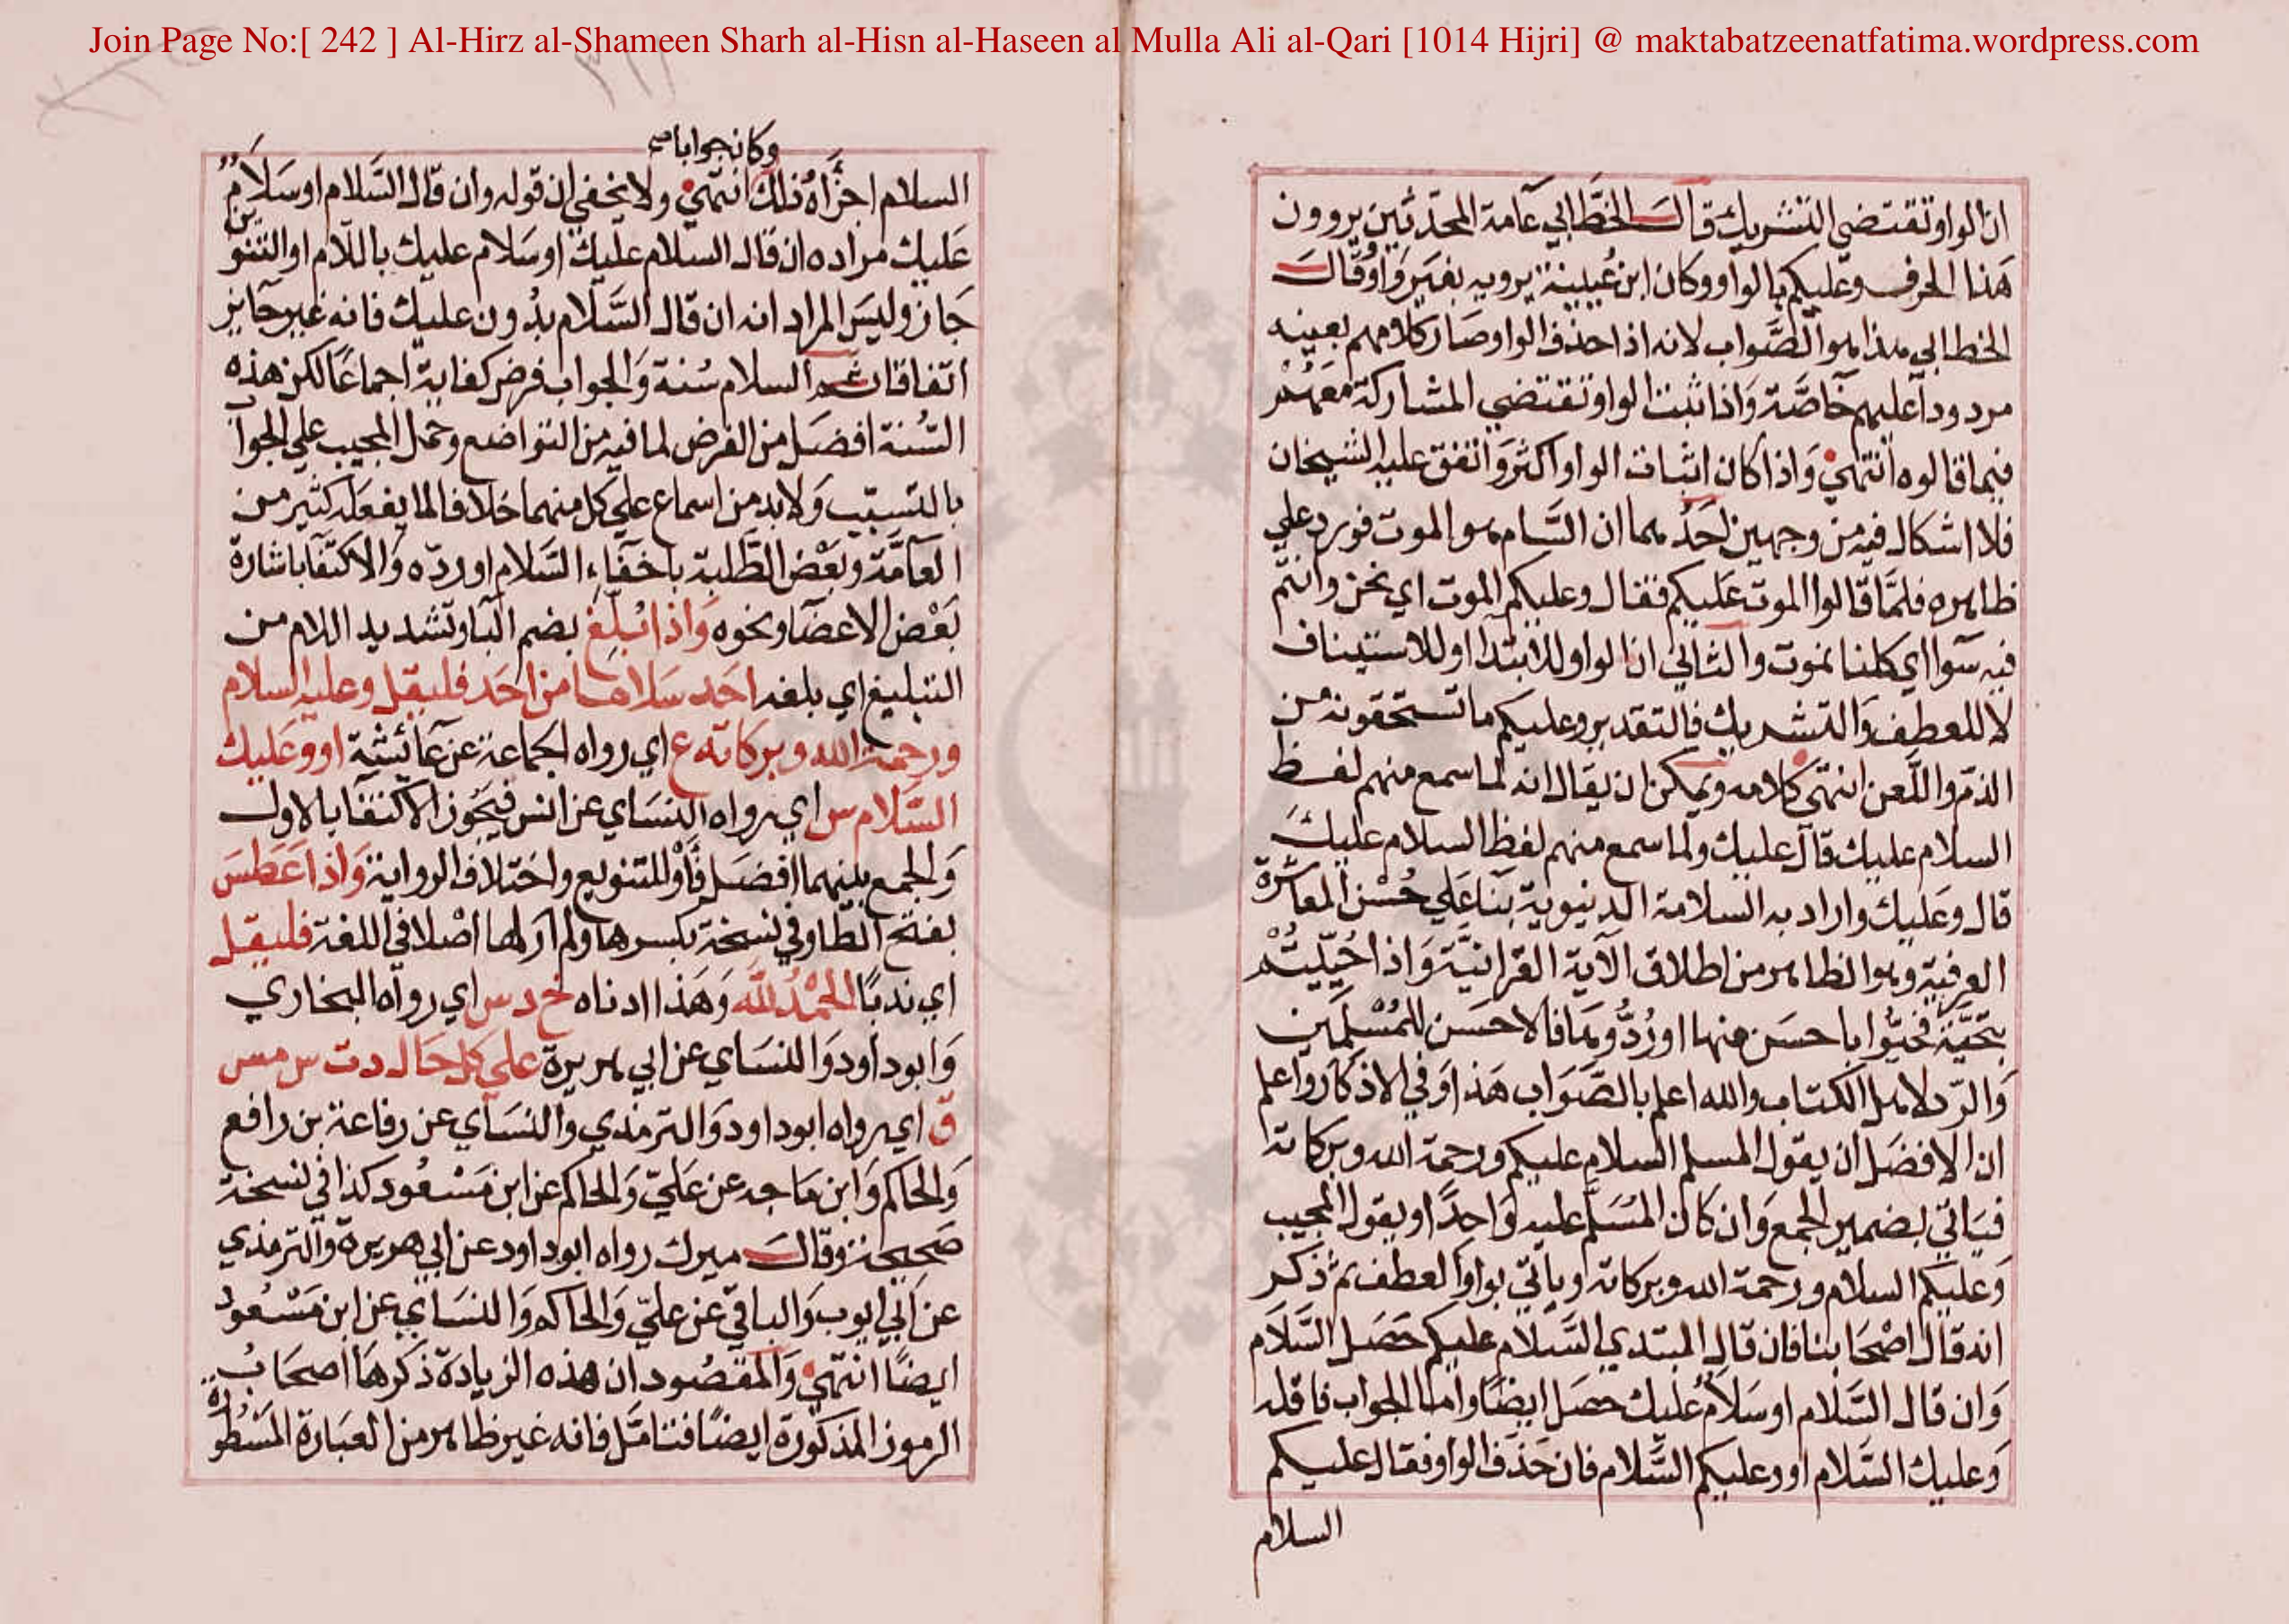 Join Page No:[ 242 ] Al-Hirz al-Shameen Sharh al-Hisn al-Haseen al Mulla Ali al-Qari [1014 Hijri] @ maktabatzeenatfatima.wordpress.com
ان الواو تقتضي التشريك قال الخطابي عامة المحدثين يروون
هذا الحرف وعليكم بالواو وكان ابن عيينة يرويه بغير واو وقال
الخطابي هذا هو الصواب لانه اذا حذف الواو صار كلامهم بعينه
مردودا عليهم خاصة واذا ثبت الواو تقتضي المشاركة معهم
فيما قالوه انتهي واذا كان اثبات الواو اكثر واتفق عليه الشيخان
فلا اشكال فيه من وجهين احدهما ان السام هو الموت فورد علي
ظاهره فلما قالوا الموت عليكم فقال وعليكم الموت اي نحن وانتم
فيه سوا اي كلنا نموت والثاني ان الواو للابتدا او للاستيناف
لا للعطف والتشريك فالتقدير وعليكم ما تستحقونه من
الذم واللعن انتهي كلامه ويمكن ان يقال انه لما سمع منهم لفظ
السلام عليك قال عليك ولما سمع منهم لفظ السلام عليك
قال وعليك واراد به السلامة الدنيوية بنا علي حسن المعاشرة
العرفية وهو الظاهر من اطلاق الآية القرانية واذا حييتم
بتحية فحيوا باحسن منها او ردوها فالاحسن للمسلمين
والرد لاهل الكتاب والله اعلم بالصواب هذا وفي الاذكار واعلم
ان الافضل ان يقول المسلم السلام عليكم ورحمة الله وبركاته
فياتي بضمير الجمع وان كان المسلم عليه واحدا ويقول المجيب
وعليكم السلام ورحمة الله وبركاته وياتي بواو العطف ثم ذكر
انه قال اصحابنا فان قال المبتدي السلام عليكم حصل السلام
وان قال السلام او سلام عليك حصل ايضا واما الجواب فاقله
وعليك السلام او وعليكم السلام فان حذف الواو فقال عليكم
السلام
وكان جوابا صح
السلام اجزأه ذلك انتهي ولا يخفي ان قوله وان قال السلام او سلام
عليك مراده ان قال السلام عليك او سلام عليك باللام او التنوين
جاز وليس المراد انه ان قال السلام بدون عليك فانه غير جايز
اتفاقا ثم السلام سنة والجواب فرض كفاية اجماعا لكن هذه
السنة افضل من الفرض لما فيه من التواضع وحمل المجيب علي الجواب
بالتسبب ولا بد من اسماع علي كل منهما خلافا لما يفعله كثير من
العامة وبعض الطلبة باخفاء السلام او رده والاكتفا باشارة
بعض الاعضا ونحوه واذا بلغ بضم البا وتشديد اللام من
التبليغ اي بلغه احد سلاما من احد فليقل وعليه السلام
ورحمة الله وبركاته ع اي رواه الجماعة عن عائشة او وعليك
السلام س اي رواه النساي عن انس فيجوز الاكتفا بالاول
والجمع بينهما افضل فأو للتنويع واختلاف الرواية واذا عطس
بفتح الطا وفي نسخة بكسرها ولم ار لها اصلا في اللغة فليقل
اي ندبا الحمد لله وهذا ادناه خ د س اي رواه البخاري
وابو داود والنساي عن ابي هريرة علي كل حال د ت س مس
ق اي رواه ابو داود والترمذي والنساي عن رفاعة بن رافع
والحاكم وابن ماجه عن علي والحاكم عن ابن مسعود كذا في نسخة
صحيحة وقال ميرك رواه ابو داود عن ابي هريرة والترمذي
عن ابي ايوب والباقي عن علي والحاكم والنساي عن ابن مسعود
ايضا انتهي والمقصود ان هذه الزيادة ذكرها اصحاب
الرموز المذكورة ايضا فتامل فانه غير ظاهر من العبارة المسطورة